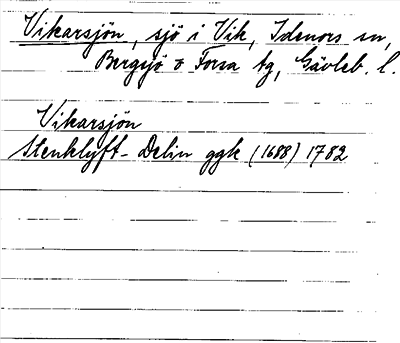 Vikarsjön, sjö i Vik, Idenors sn,
Bergsjö o Forsa tg, Gävleb. l.
Vikarsjön
Stenklyft- Delin ggk (1688) 1782